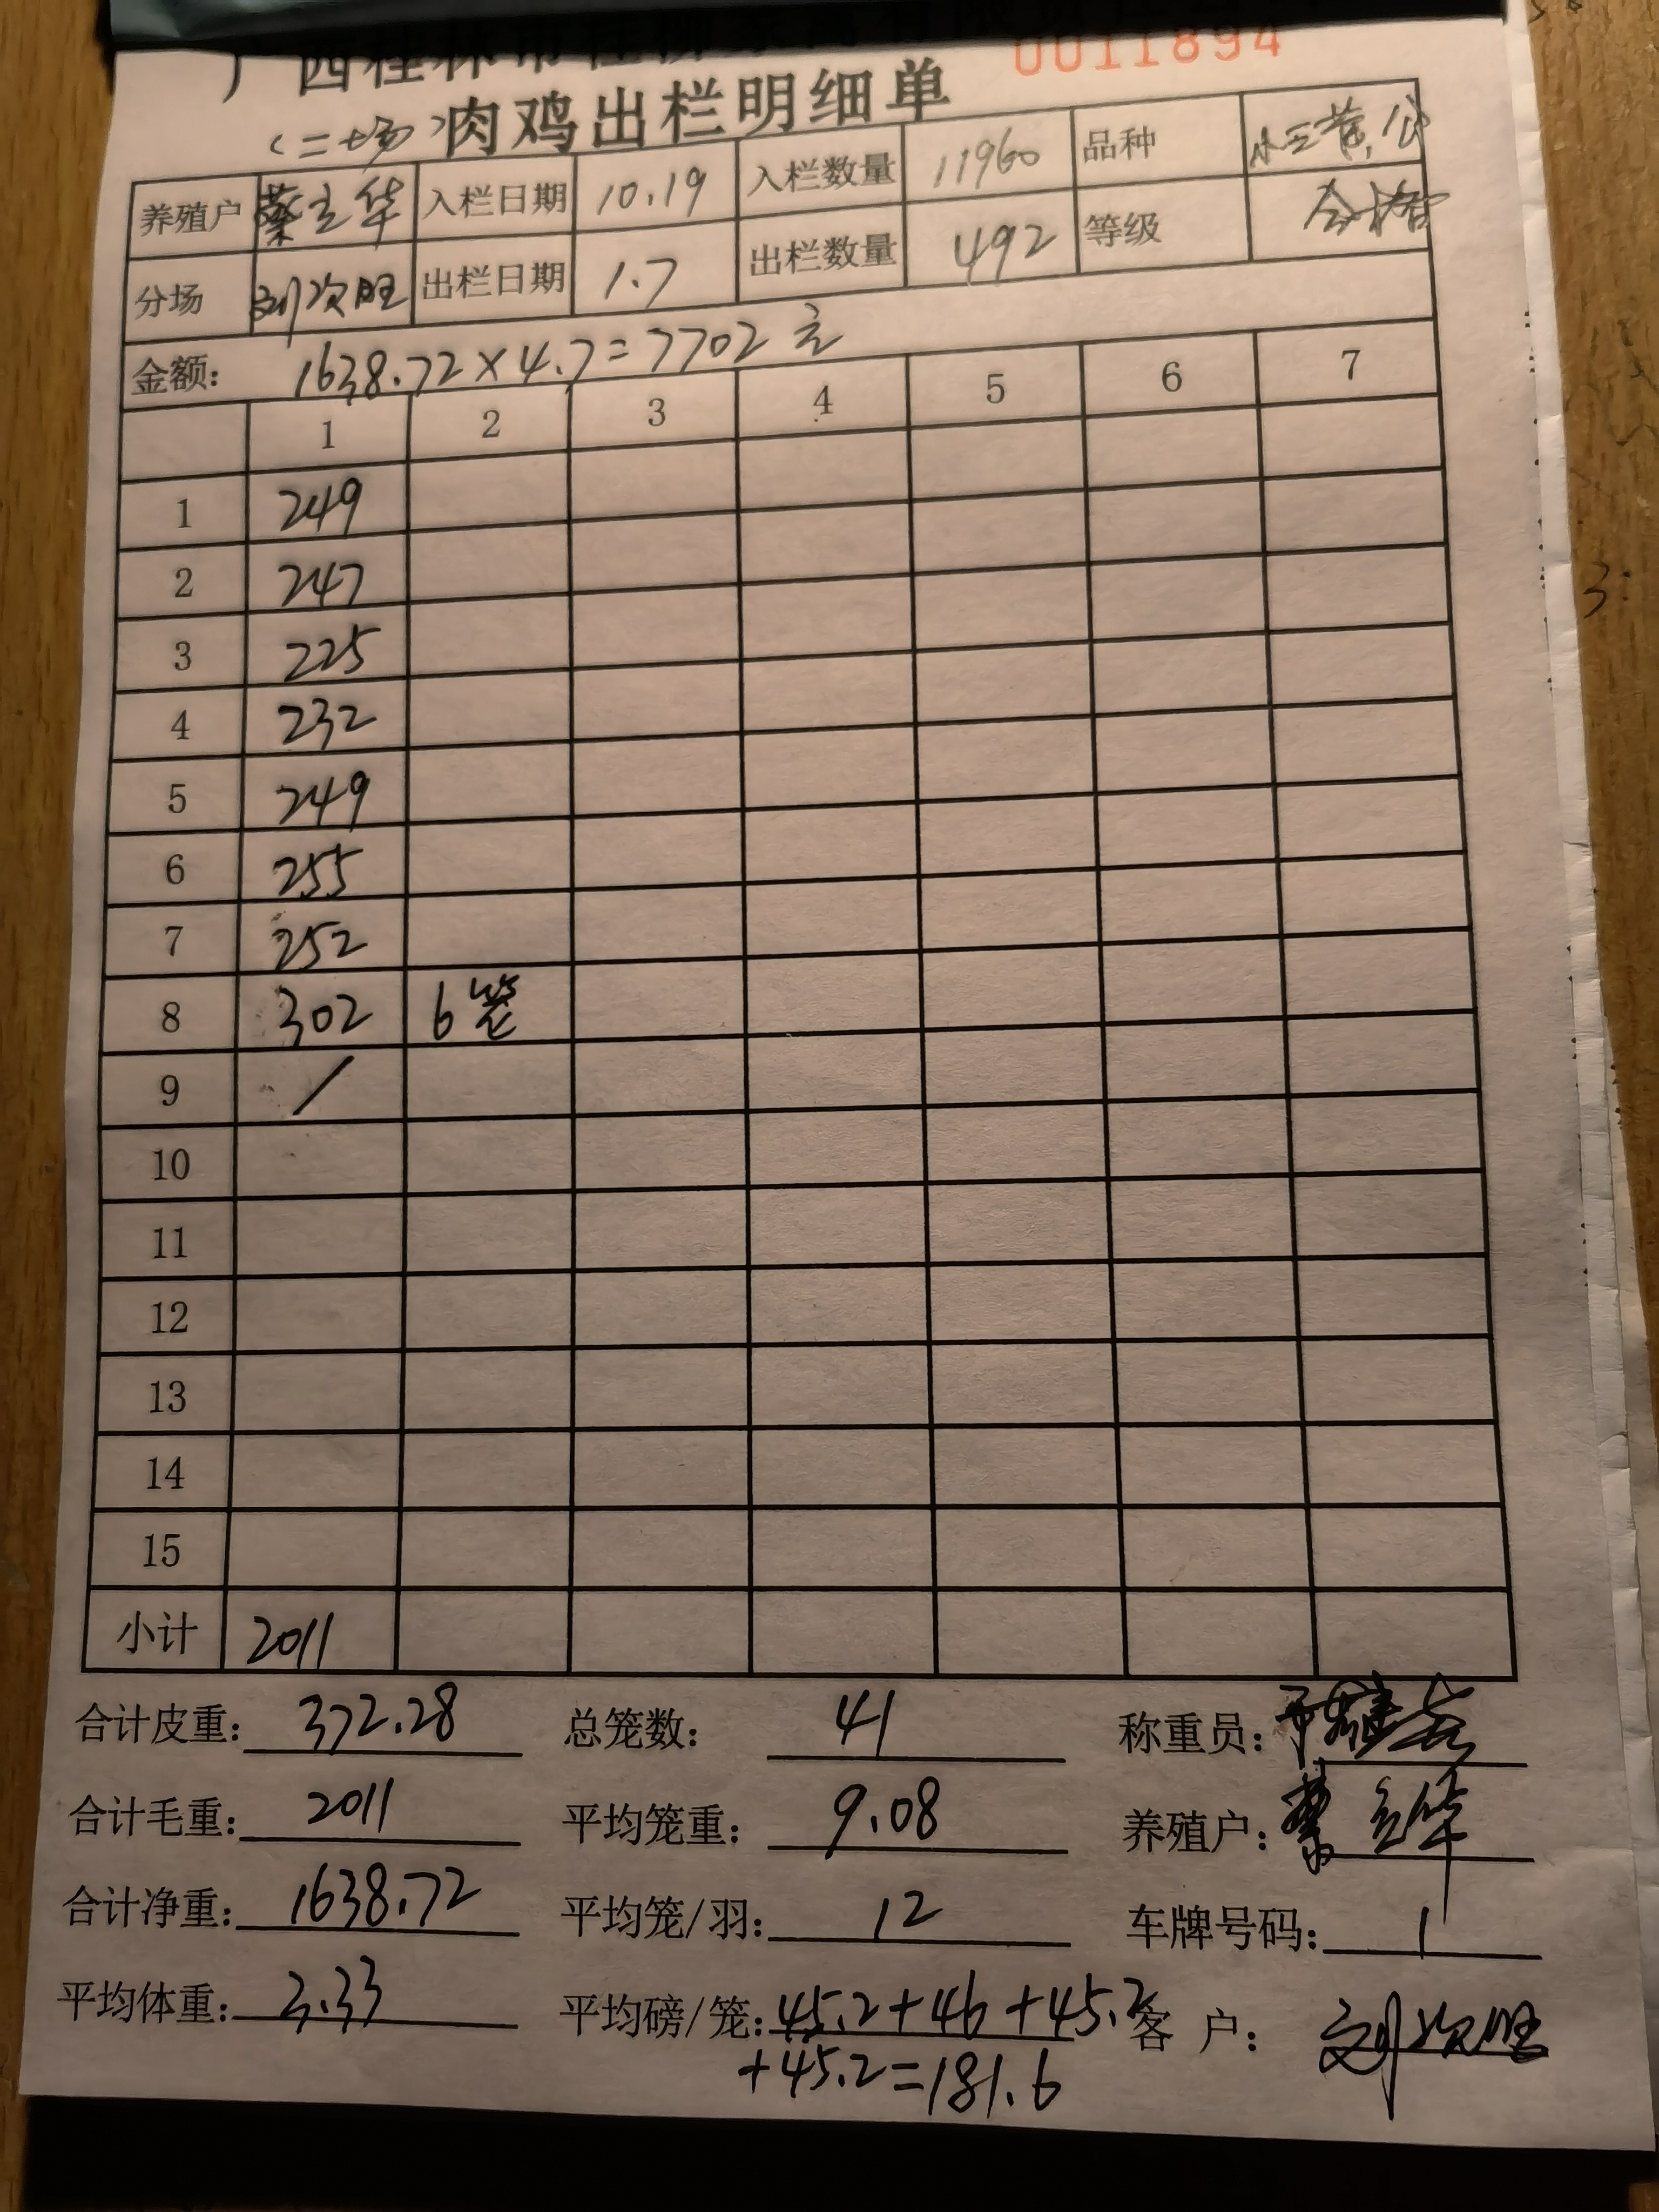 0011894
(二场) 肉鸡出栏明细单
养殖户 蔡立华 入栏日期 10.19 入栏数量 11960 品种 小三黄,公
分场 刘次旺 出栏日期 1.7 出栏数量 492 等级 合格
金额: 1638.72×4.7=7702元
1 2 3 4 5 6 7
1 249
2 247
3 225
4 232
5 249
6 255
7 252
8 302 6笼
9 /
10
11
12
13
14
15
小计 2011
合计皮重: 372.28 总笼数: 41 称重员:
合计毛重: 2011 平均笼重: 9.08 养殖户: 蔡立华
合计净重: 1638.72 平均笼/羽: 12 车牌号码: 1
平均体重: 3.33 平均磅/笼: 45.2+46+45.2 客 户: 刘次旺
+45.2=181.6